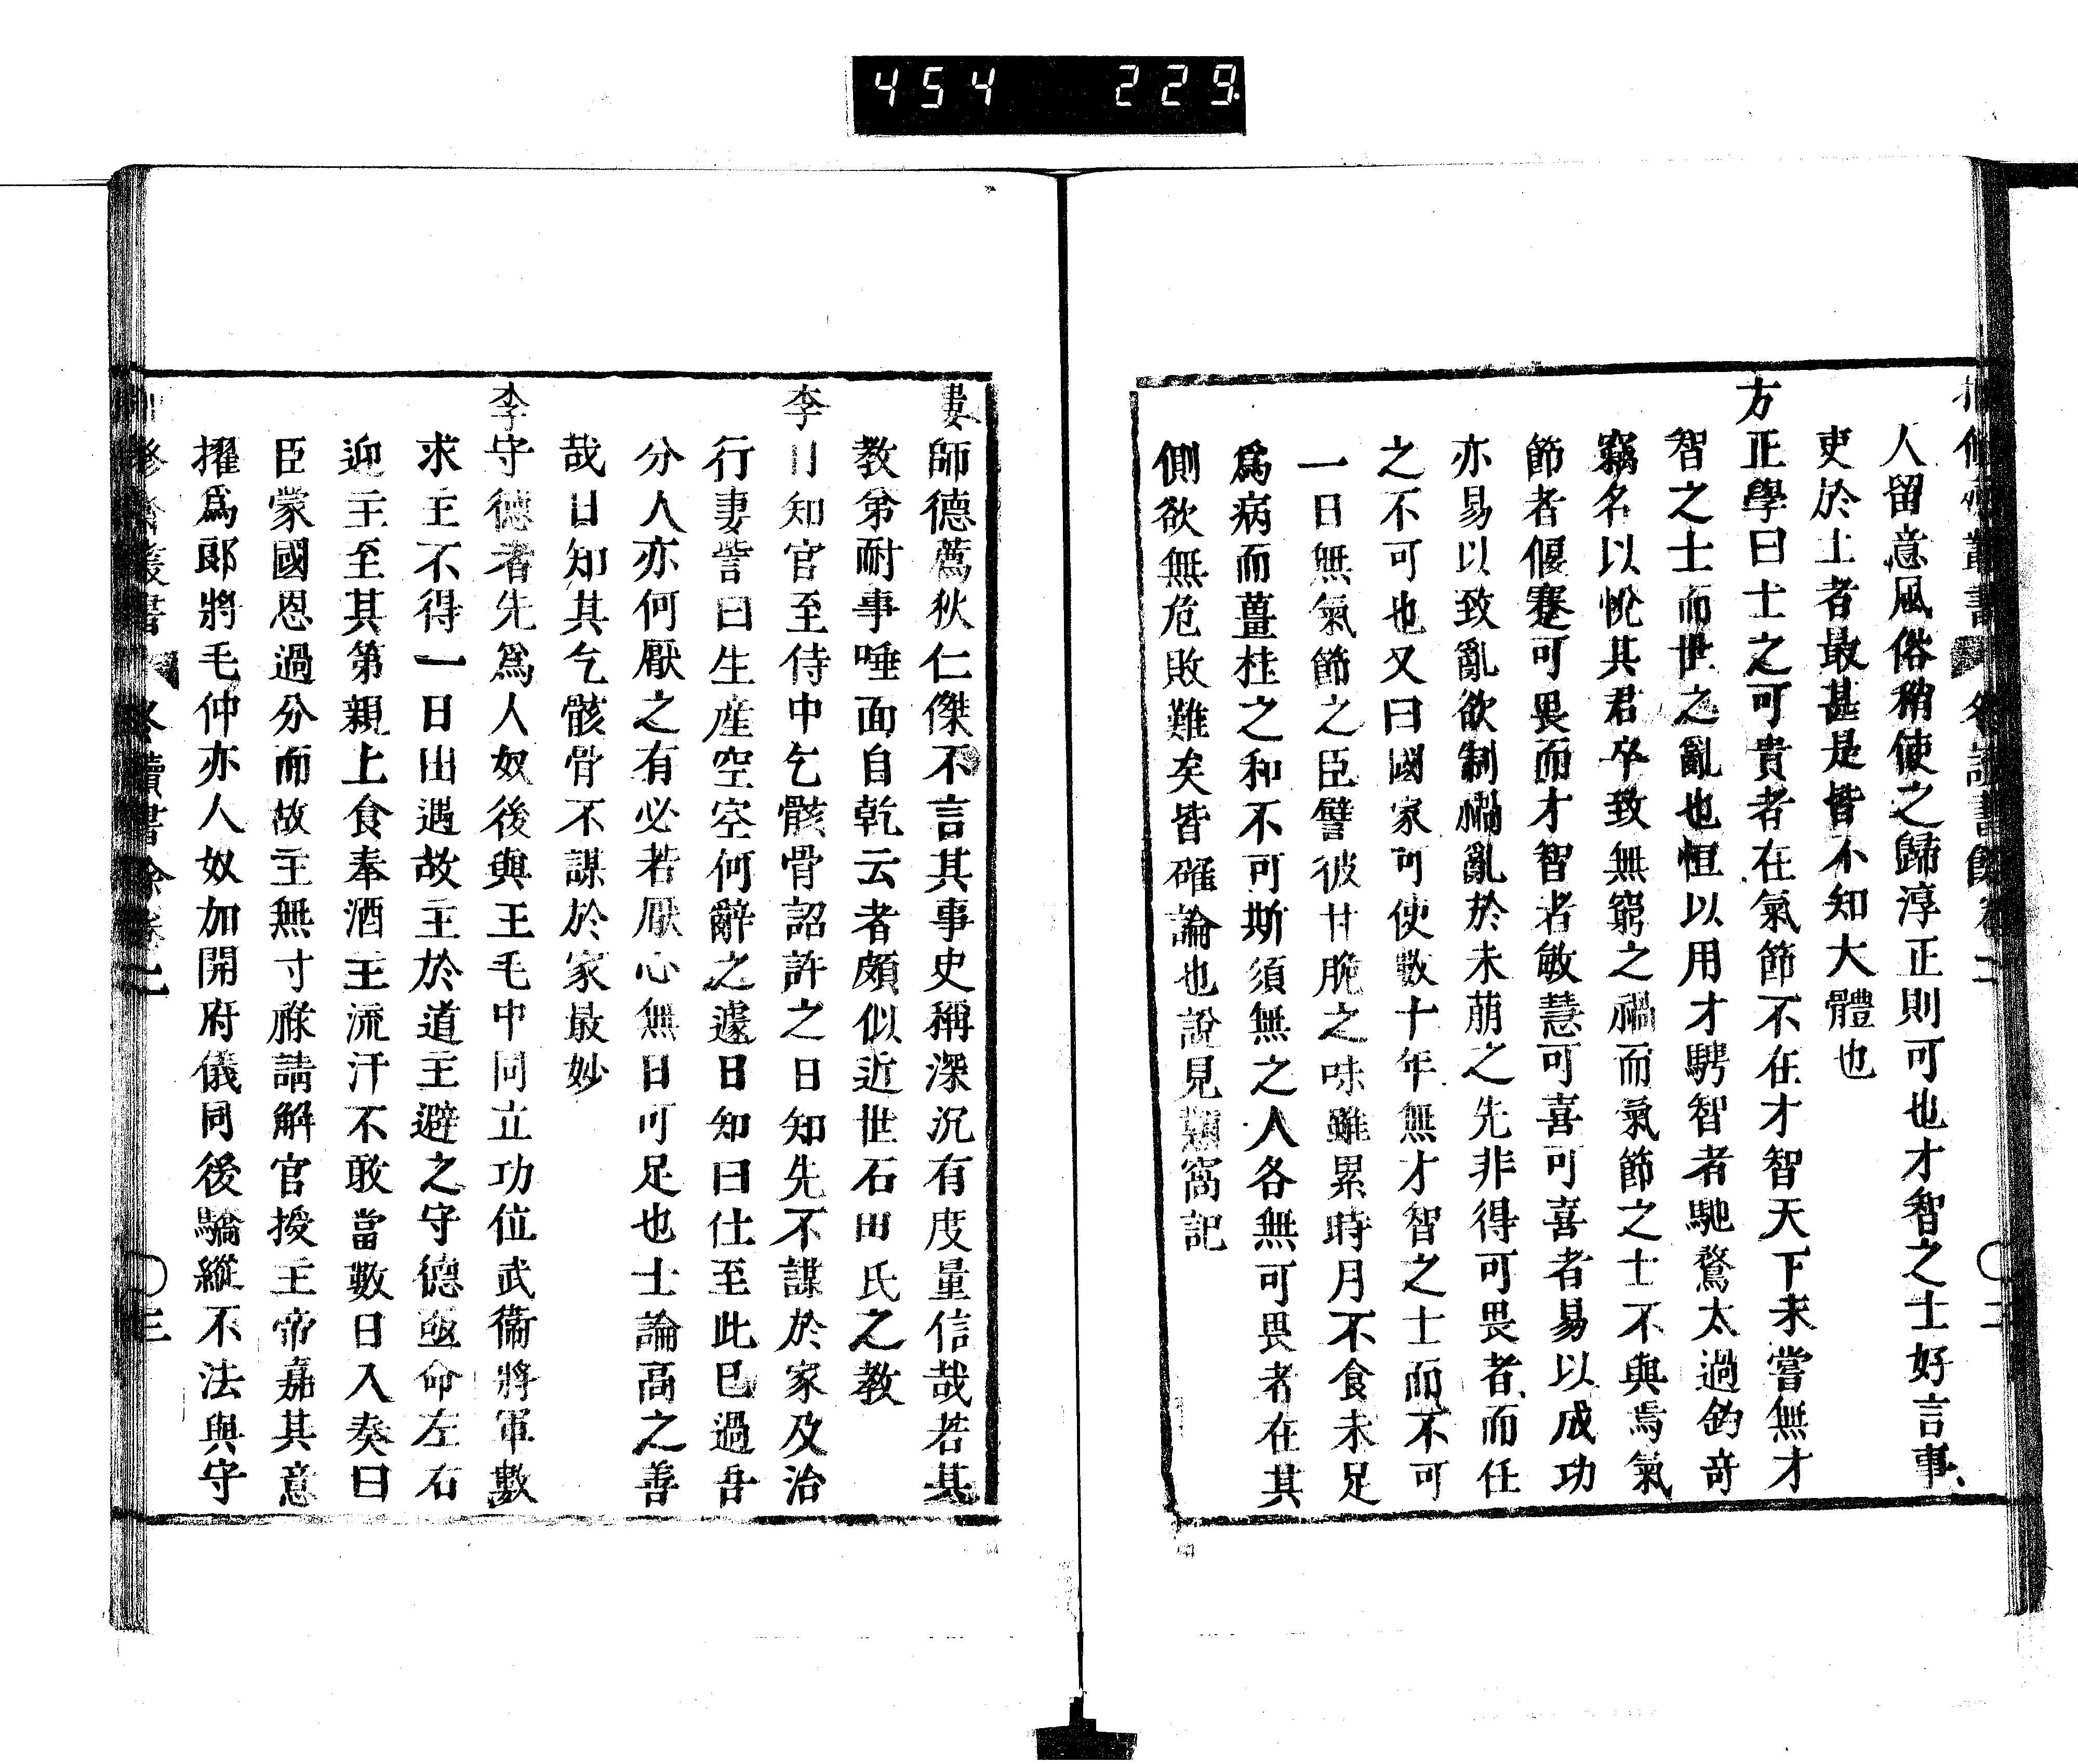 454 229
人留意風俗稍使之歸淳正則可也才智之士好言事
吏於上者最甚是皆不知大體也
方正學曰士之可貴者在氣節不在才智天下未嘗無才
智之士而世之亂也恒以用才騁智者馳騖太過鈎奇
竊名以悅其君卒致無窮之禍而氣節之士不與焉氣
節者偃蹇可畏而才智者敏慧可喜可喜者易以成功
亦易以致亂欲制禍亂於未萠之先非得可畏者而任
之不可也又曰國家可使數十年無才智之士而不可
一日無氣節之臣譬彼甘脆之味雖累時月不食未足
爲病而薑桂之和不可斯須無之人各無可畏者在其
側欲無危敗難矣皆確論也說見窩記
婁師德薦狄仁傑不言其事史稱深沉有度量信哉若其
教弟耐事唾面自乾云者頗似近世石田氏之教
李日知官至侍中乞骸骨詔許之日知先不謀於家及治
行妻訾曰生產空空何辭之遽日知曰仕至此已過吾
分人亦何厭之有必若厭心無日可足也士論高之善
哉日知其乞骸骨不謀於家最妙
李守德者先爲人奴後與王毛中同立功位武衞將軍數
求主不得一日出遇故主於道主避之守德亟命左右
迎主至其第親上食奉酒主流汗不敢當數日入奏曰
臣蒙國恩過分而故主無寸祿請解官授主帝嘉其意
擢爲郞將毛仲亦人奴加開府儀同後驕縱不法與守
叢書 冬讀書餘卷二 〇三